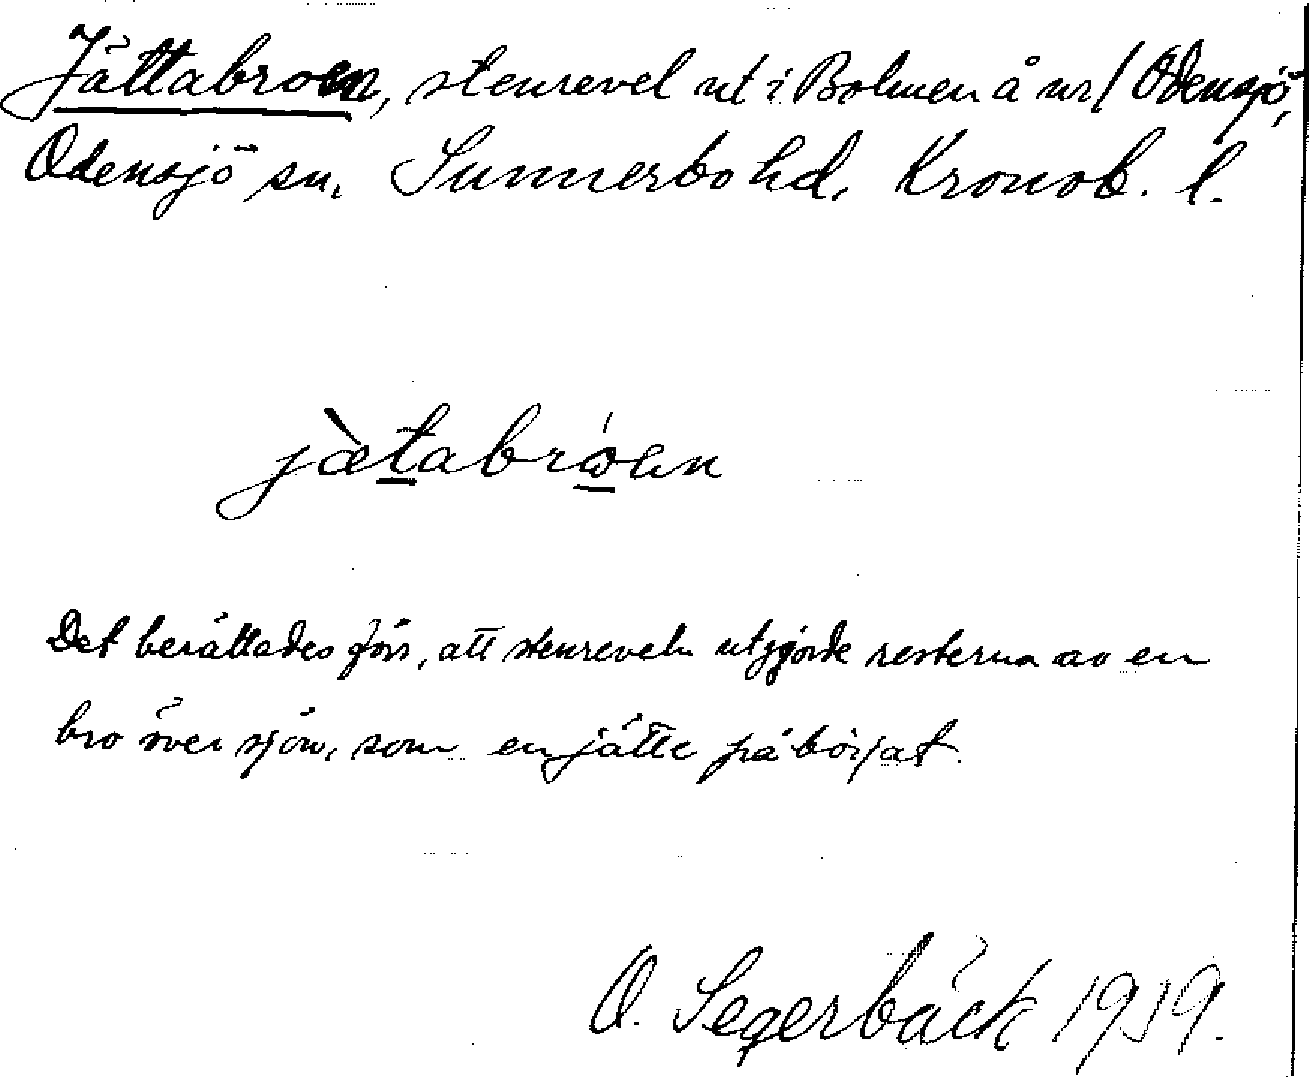 Jättabroen, stenrevel ut i Bolmen å nr 1 Odensjö,
Odensjö sn, Sunnerbo hd, Kronob. l.
jæ̀tabrόen
Det berättades förr, att stenreveln utgjorde resterna av en
bro över sjön, som en jätte påbörjat.
O. Segerbäck 1919.